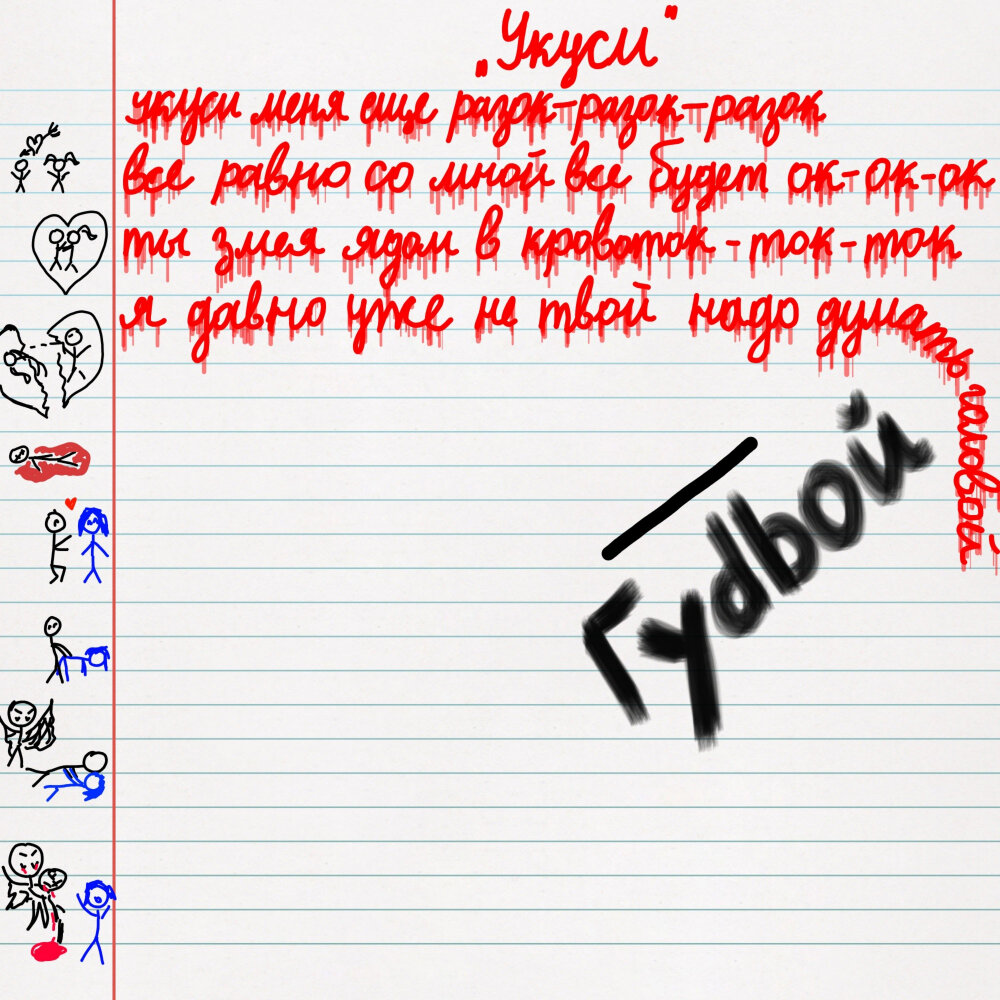 „Укуси"
укуси меня еще разок-разок-разок
все равно со мной все будет ок-ок-ок
ты змея ядом в кровоток-ток-ток
я давно уже не твой надо думать головой
Гудвой